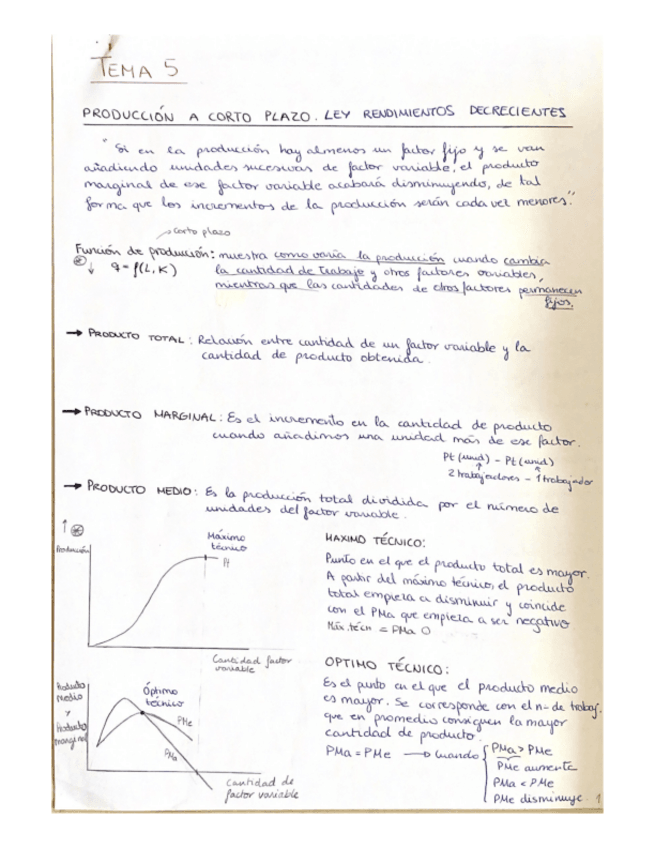 TEMA 5
PRODUCCIÓN A CORTO PLAZO. LEY RENDIMIENTOS DECRECIENTES
"Si en la producción hay almenos un factor fijo y se van
añadiendo unidades sucesivas de factor variable, el producto
marginal de ese factor variable acabará disminuyendo, de tal
forma que los incrementos de la producción serán cada vez menores."
corto plazo
Función de producción: muestra como varía la producción cuando cambia
q = f(L, K) la cantidad de trabajo y otros factores variables,
mientras que las cantidades de otros factores permanecen
fijos.
→ PRODUCTO TOTAL: Relación entre cantidad de un factor variable y la
cantidad de producto obtenida.
→ PRODUCTO MARGINAL: Es el incremento en la cantidad de producto
cuando añadimos una unidad más de ese factor.
Pt (unid) - Pt (unid)
2 trabajadores - 1 trabajador
→ PRODUCTO MEDIO: Es la producción total dividida por el número de
unidades del factor variable.
Producción
Máximo
técnico
Pt
Cantidad factor
variable
MAXIMO TÉCNICO:
Punto en el que el producto total es mayor.
A partir del máximo técnico, el producto
total empieza a disminuir y coincide
con el PMa que empieza a ser negativo
Máx. técn = PMa 0
Producto
Medio
y
Producto
marginal
Óptimo
técnico
PMe
PMa
Cantidad de
factor variable
OPTIMO TÉCNICO:
Es el punto en el que el producto medio
es mayor. Se corresponde con el nº de trabaj.
que en promedio consiguen la mayor
cantidad de producto.
PMa = PMe → Cuando { PMa > PMe
PMe aumenta
PMa < PMe
PMe disminuye.
1